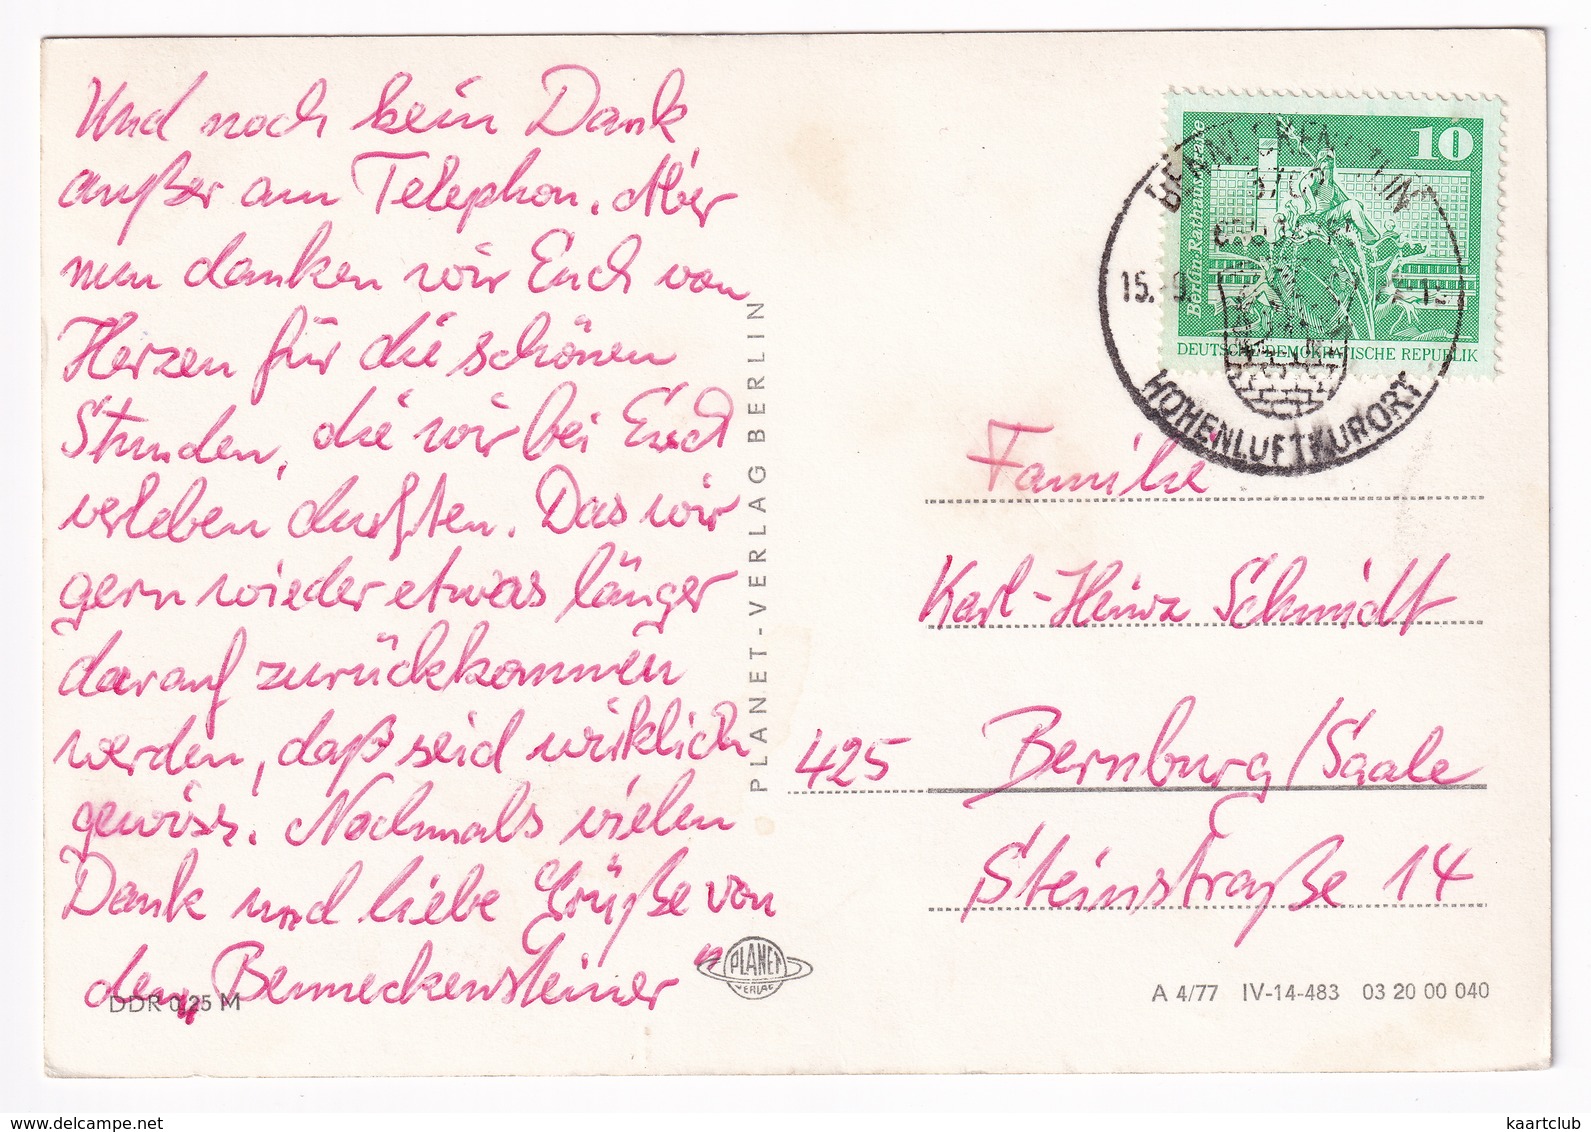 Und noch kein Dank
außer am Telephon. Aber
nun danken wir Euch von
Herzen für die schönen
Stunden, die wir bei Euch
verleben durften. Das wir
gern wieder etwas länger
darauf zurückkommen
werden, daß seid wirklich
gewiss. Nochmals vielen
Dank und liebe Grüße von
den „Benneckensteiner"
DDR 0,25 M
PLANET-VERLAG BERLIN
PLANET
VERLAG
10
Berlin, Rathausstraße
DEUTSCHE DEMOKRATISCHE REPUBLIK
15.-9.
HÖHENLUFTKURORT
Familie
Karl-Heinz Schmidt
425 Bernburg/Saale
Steinstraße 14
A 4/77 IV-14-483 03 20 00 040
kaartclub